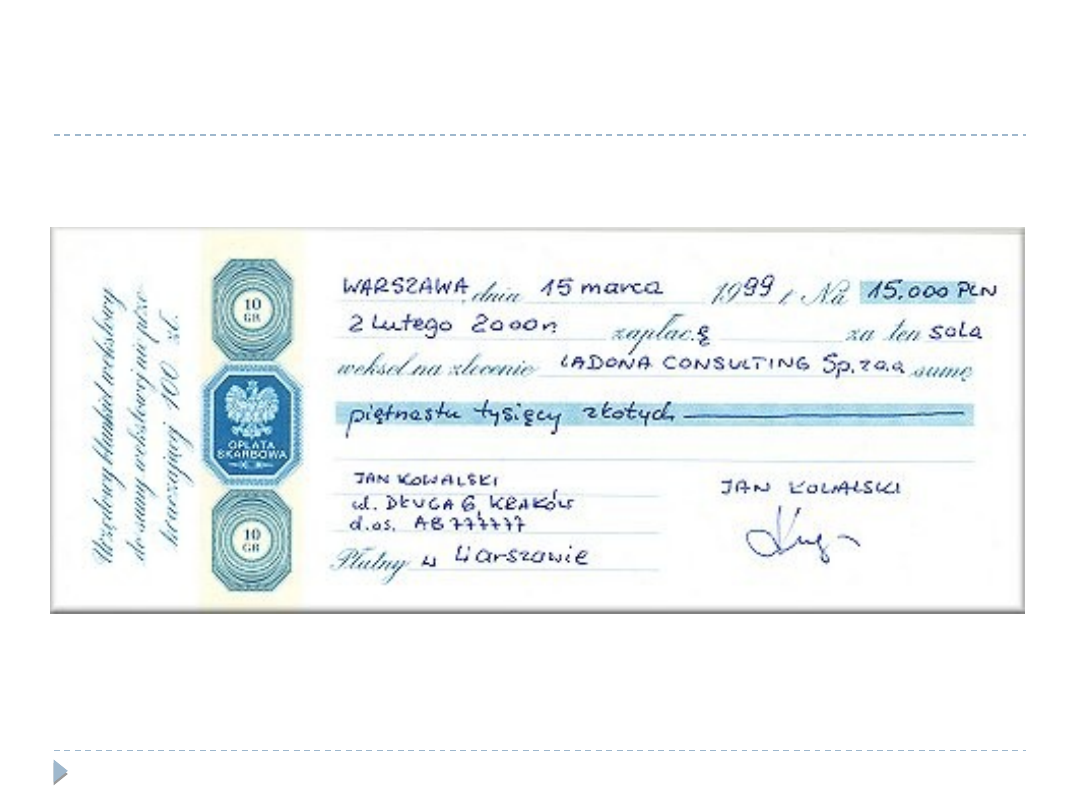 Urzędowy blankiet wekslowy
do sumy wekslowej nie prze-
kraczającej 100 zł.
10
GR
OPŁATA
SKARBOWA
10
GR
WARSZAWA, dnia 15 marca 1999 r. Na 15.000 PLN
2 Lutego 2000r. zapłacę za ten sola
weksel na zlecenie ŁADONA CONSULTING Sp. z o.o sumę
piętnastu tysięcy złotych
JAN KOWALSKI
ul. DŁUGA 6, KRAKÓW
d.os. AB 777777
Płatny w Warszawie
JAN KOWALSKI